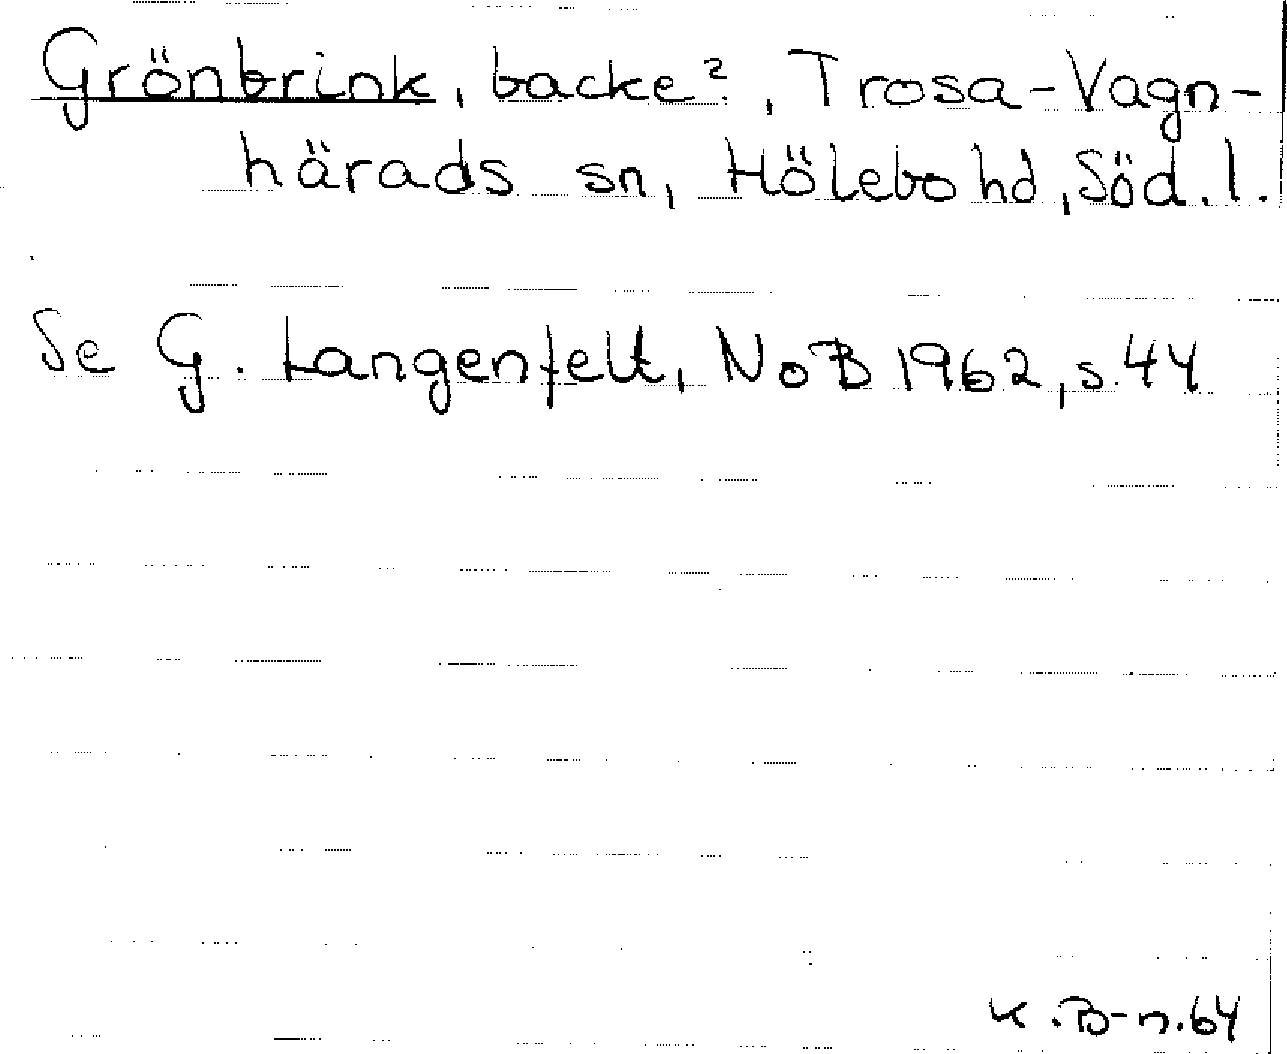 Grönbrink, backe?, Trosa-Vagn-
härads sn, Hölebo hd, Söd.l.
Se G. Langenfelt, NoB 1962, s.44
K.B-n.64